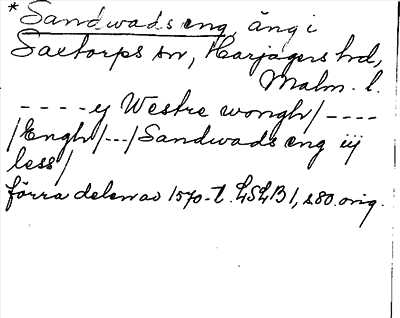 *Sandwads eng, äng i
Saxtorps sn, Harjagers hd,
Malm. l.
- - - - ej Westre wongh/ - - - -
/Engh/---/Sandwads eng iij
less/
förra delen av 1570-t. LSLB 1, s80. orig.